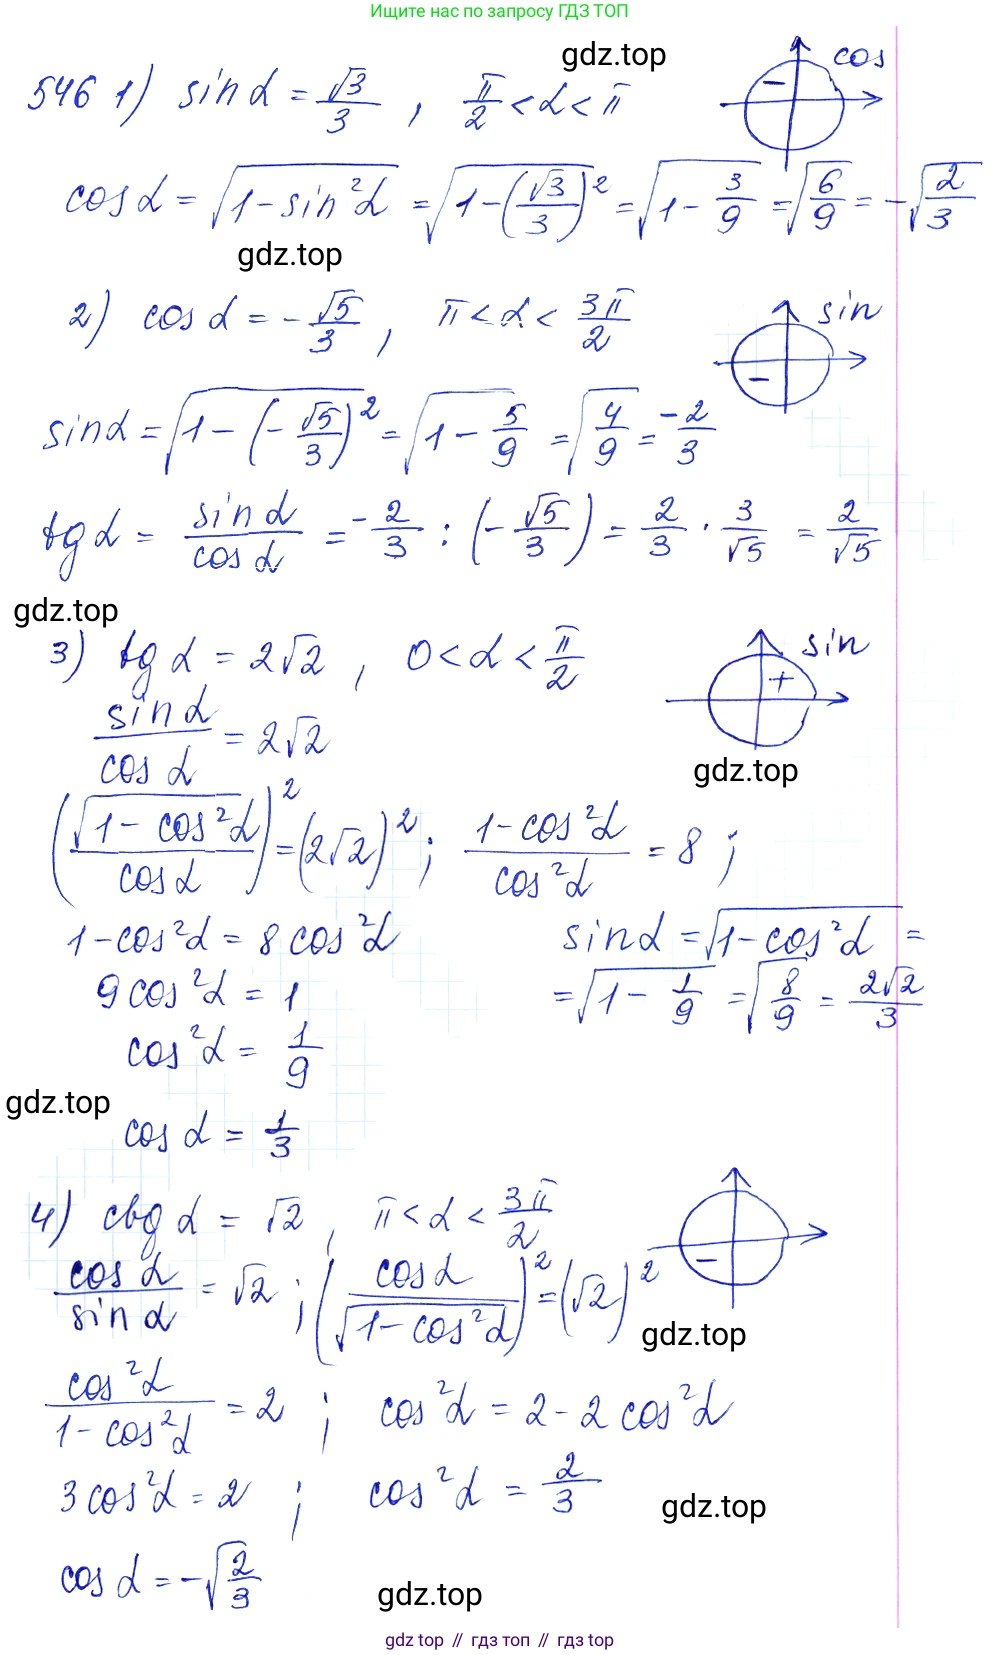 Ищите нас по запросу ГДЗ ТОП
gdz.top
546 1) sin α = √3/3 , π/2 < α < π
cos
−
cos α = √(1 − sin²α) = √(1 − (√3/3)²) = √(1 − 3/9) = √(6/9) = −√(2/3)
gdz.top
2) cos α = −√5/3 , π < α < 3π/2
sin
−
sin α = √(1 − (−√5/3)²) = √(1 − 5/9) = √(4/9) = −2/3
tg α = sin α/cos α = −2/3 : (−√5/3) = 2/3 · 3/√5 = 2/√5
gdz.top
3) tg α = 2√2 , 0 < α < π/2
sin
+
sin α/cos α = 2√2
gdz.top
(√(1 − cos²α)/cos α)² = (2√2)² ; (1 − cos²α)/cos²α = 8 ;
1 − cos²α = 8 cos²α
sin α = √(1 − cos²α) =
9 cos²α = 1
= √(1 − 1/9) = √(8/9) = 2√2/3
cos²α = 1/9
gdz.top
cos α = 1/3
4) ctg α = √2 , π < α < 3π/2
−
cos α/sin α = √2 ; (cos α/√(1 − cos²α))² = (√2)²
gdz.top
cos²α/(1 − cos²α) = 2 ; cos²α = 2 − 2 cos²α
3 cos²α = 2 ; cos²α = 2/3
gdz.top
cos α = −√(2/3)
gdz.top
gdz top // гдз топ // гдз top